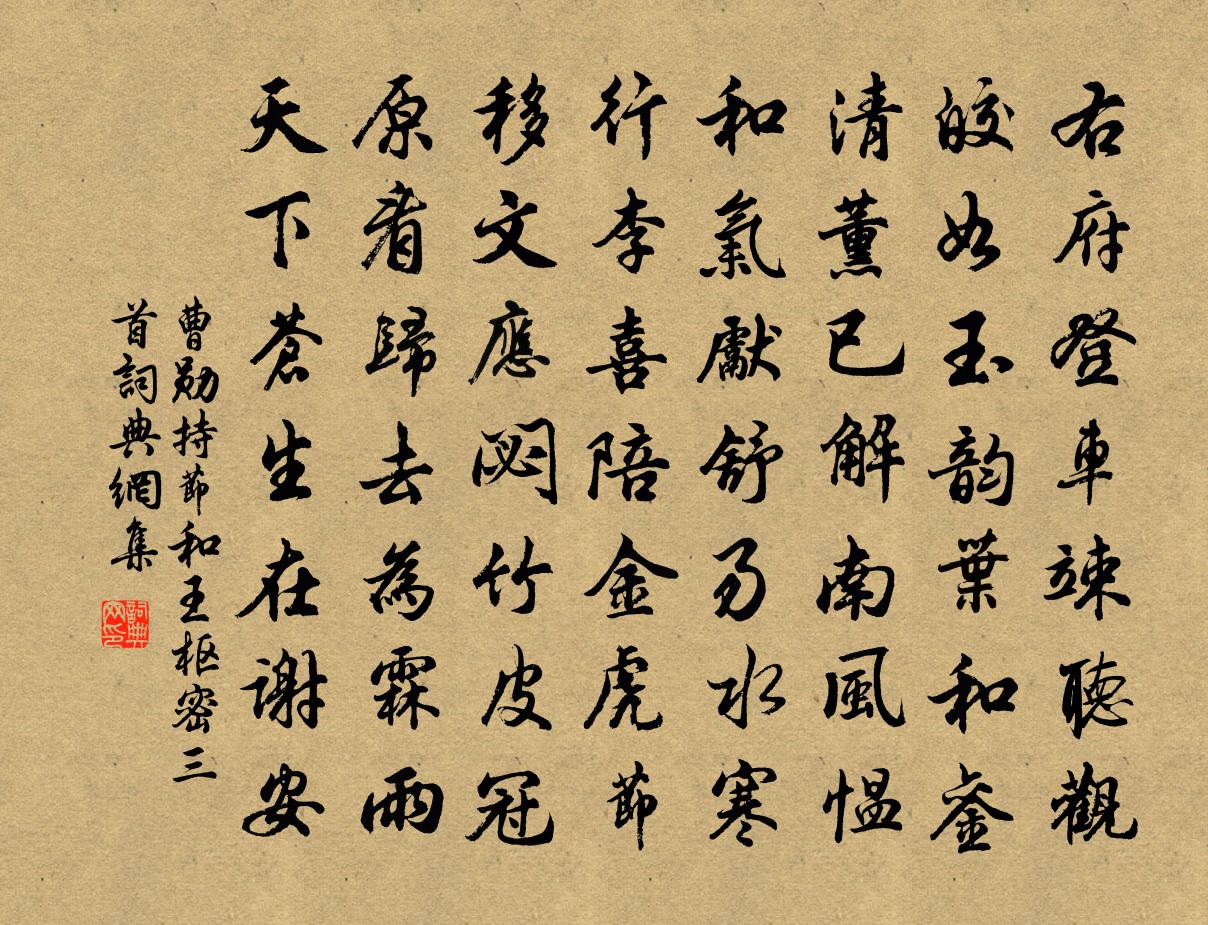 右府登車竦聽觀
皎如玉韵葉和鑾
清薰已解南風慍
和氣獻舒易水寒
行李喜陪金虎節
移文應閟竹皮冠
原看歸去為霖雨
天下蒼生在謝安
曹勛持節和王枢密三
首詞典網集
詞典
网印